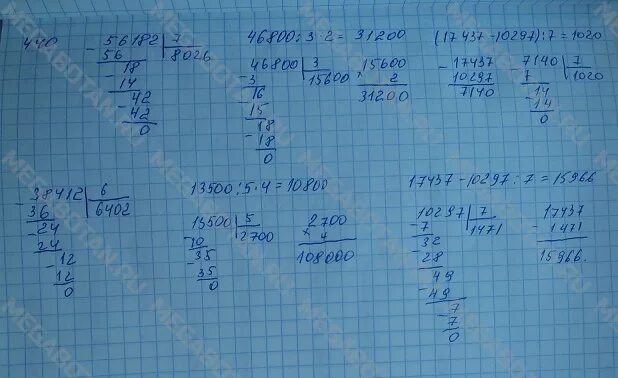 440
- 56182 | 7
56 | 8026
- 18
14
- 42
- 42
0
46800 : 3 · 2 = 31200
46800 | 3
- 3 | 15600
- 16
15
- 18
- 18
0
15600
× 2
31200
(17437 - 10297) : 7 = 1020
- 17437
10297
7140
- 7140 | 7
7 | 1020
- 14
- 14
0
- 38412 | 6
36 | 6402
- 24
24
- 12
12
0
13500 : 5 · 4 = 10800
13500 | 5
- 10 | 2700
- 35
- 35
0
2700
× 4
108000
17437 - 10297 : 7 = 15966
10297 | 7
- 7 | 1471
32
- 28
49
- 49
- 7
7
0
17437
- 1471
15966.
MEGABOTAN.RU